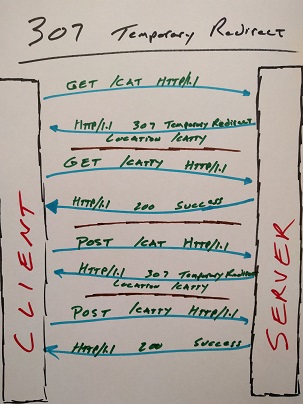 307 Temporary Redirect
GET /CAT HTTP/1.1
HTTP/1.1 307 Temporary Redirect
Location /CATTY
GET /CATTY HTTP/1.1
HTTP/1.1 200 Success
POST /CAT HTTP/1.1
HTTP/1.1 307 Temporary Redirect
Location /CATTY
POST /CATTY HTTP/1.1
HTTP/1.1 200 Success
CLIENT
SERVER